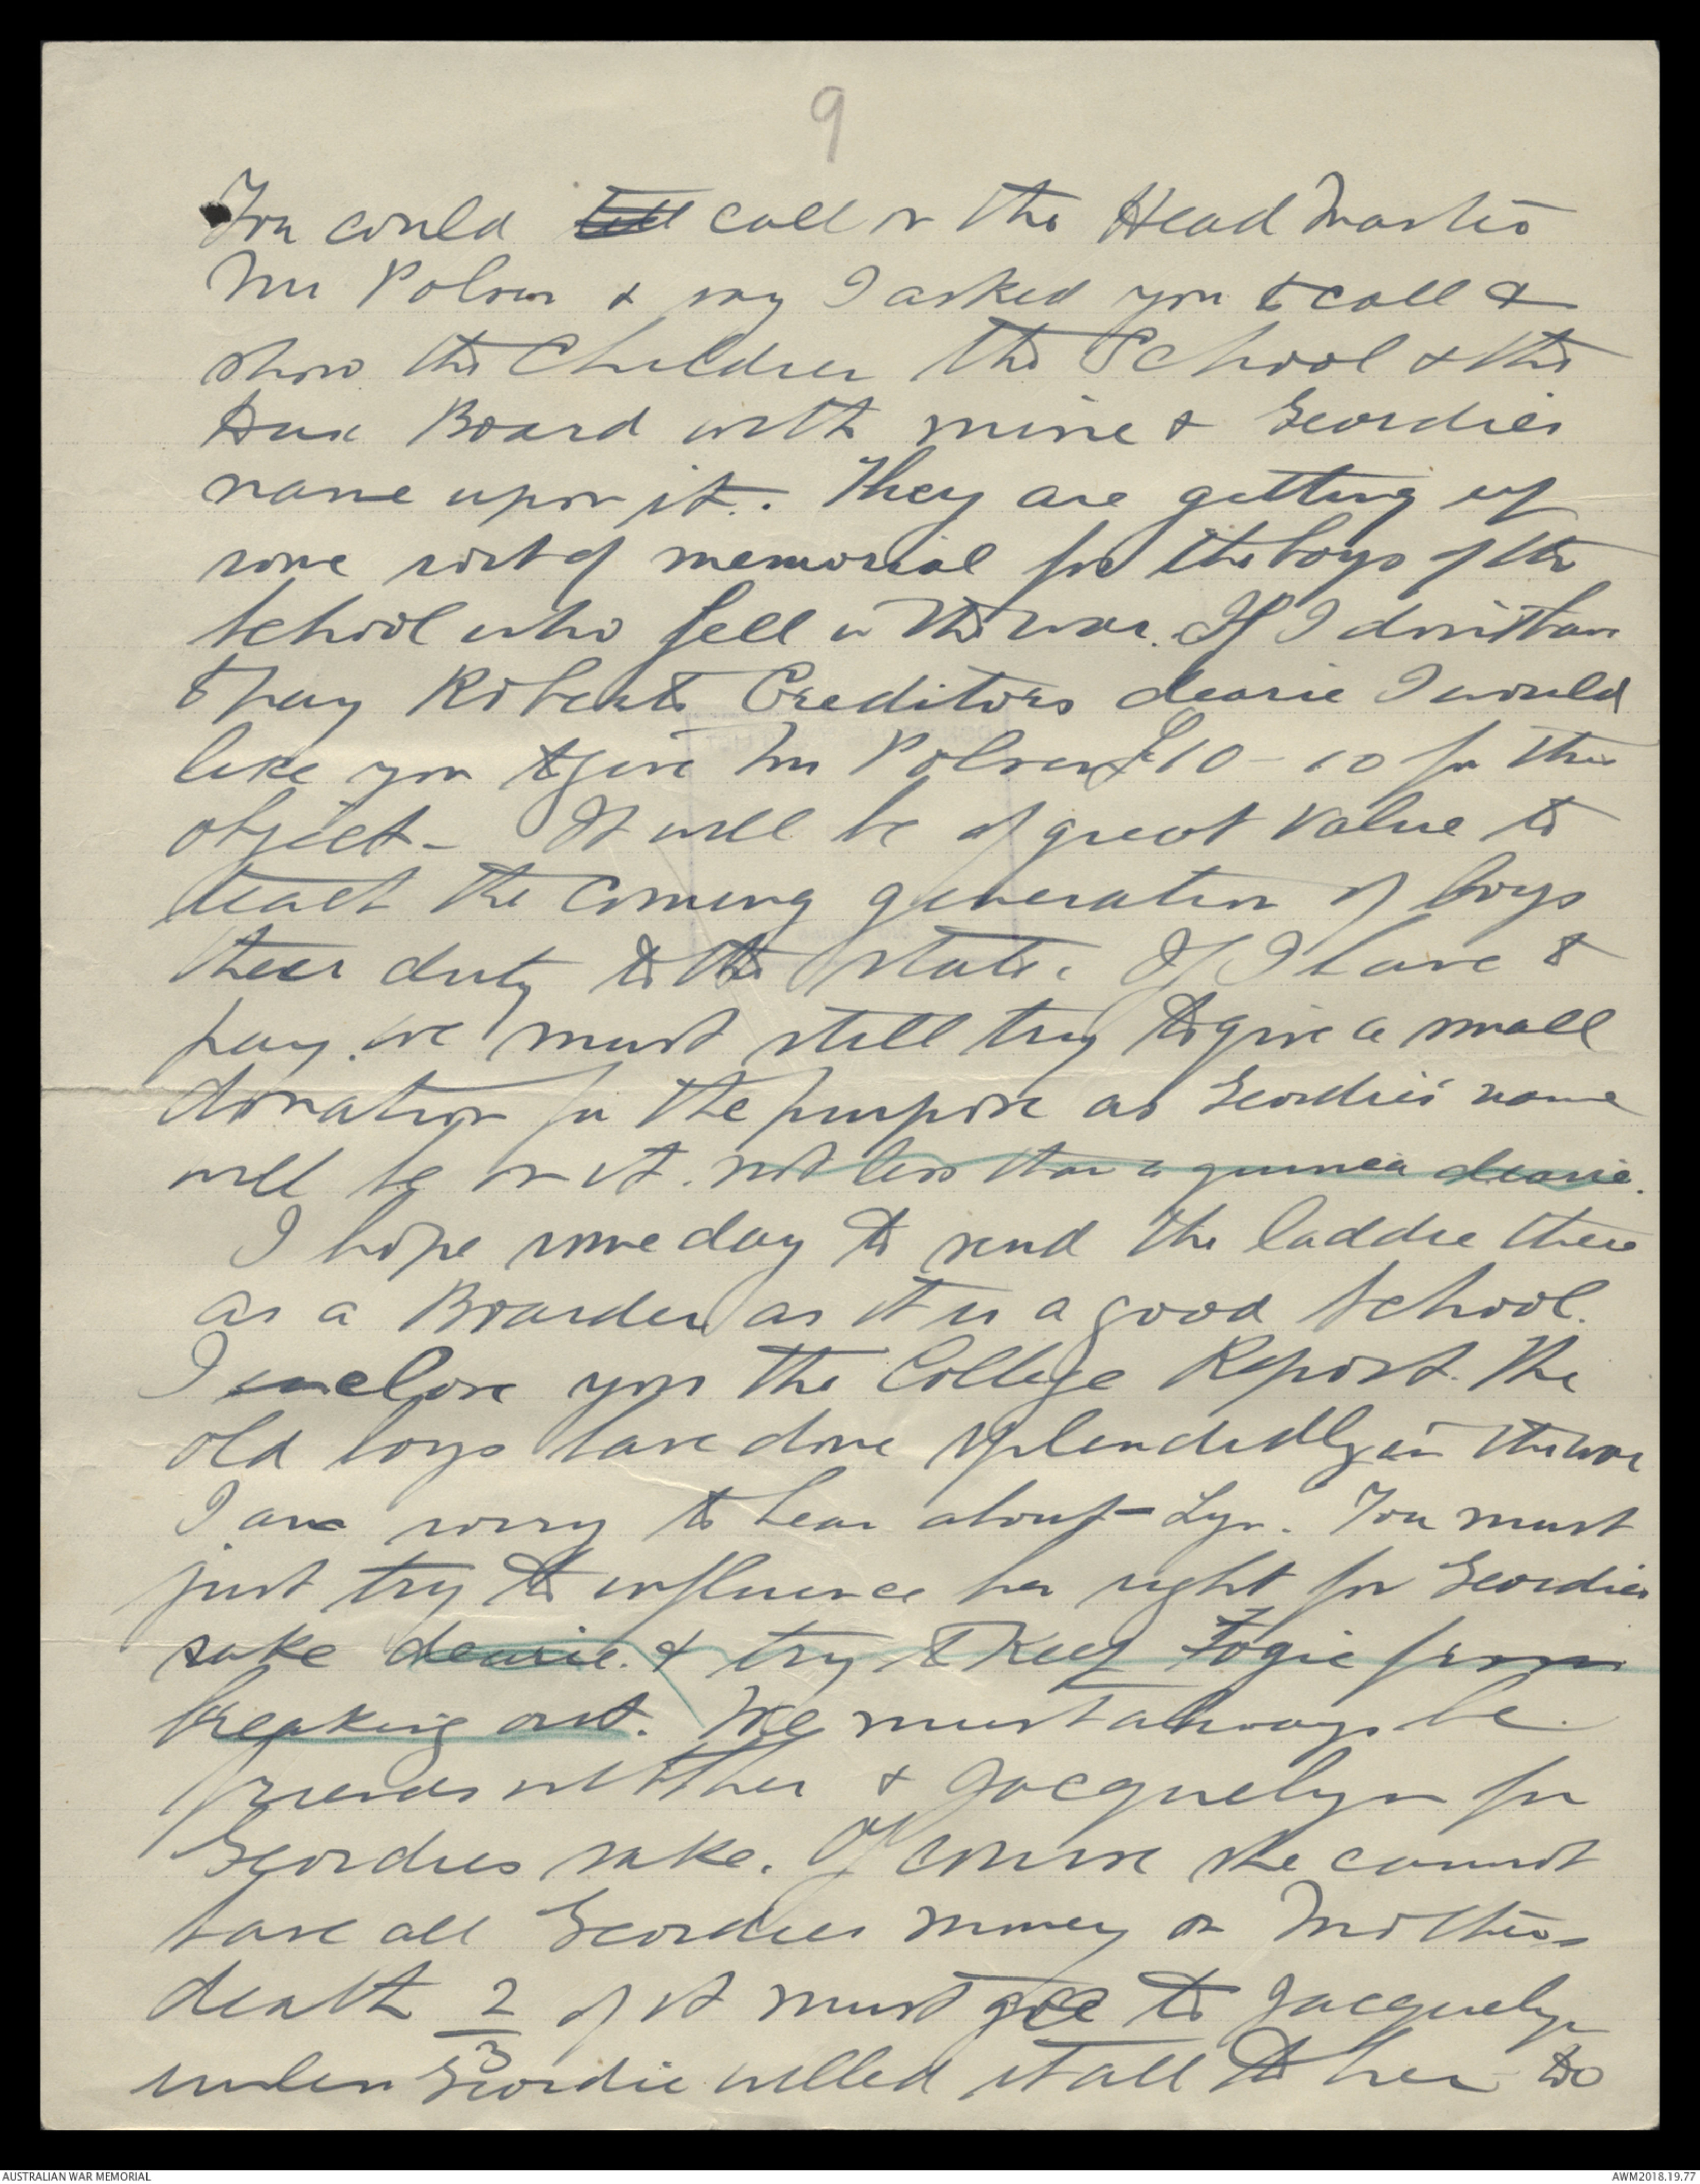 9
You could tell call on the Head Master
Mr Polson & say I asked you to call &
show the Children the School & the
Dux Board with mine & Geordies
name upon it. They are getting up
some sort of memorial for the boys of the
School who fell in the war. If I don't have
to pay Roberts Creditors dearie I would
like you to give Mr Polson £10-10 for this
object - It will be of great value to
teach the coming generation of boys
their duty to the State. If I have to
pay, we must still try to give a small
donation for the purpose as Geordie's name
will be on it. not less than a guinea dearie.
I hope some day to send the laddie there
as a Boarder as it is a good School.
I enclose you the College Report. The
old boys have done splendidly in the war
I am sorry to hear about Lyn. You must
just try to influence her right for Geordies
sake dearie. & try to keep Fogie from
breaking out. We must always be
friends with her & Jacquelyn for
Geordies sake. Of course she cannot
have all Geordies money on Mothers
death 2/3 of it must go to Jacquelyn
unless Geordie willed it all to her to
AUSTRALIAN WAR MEMORIAL
AWM2018.19.77